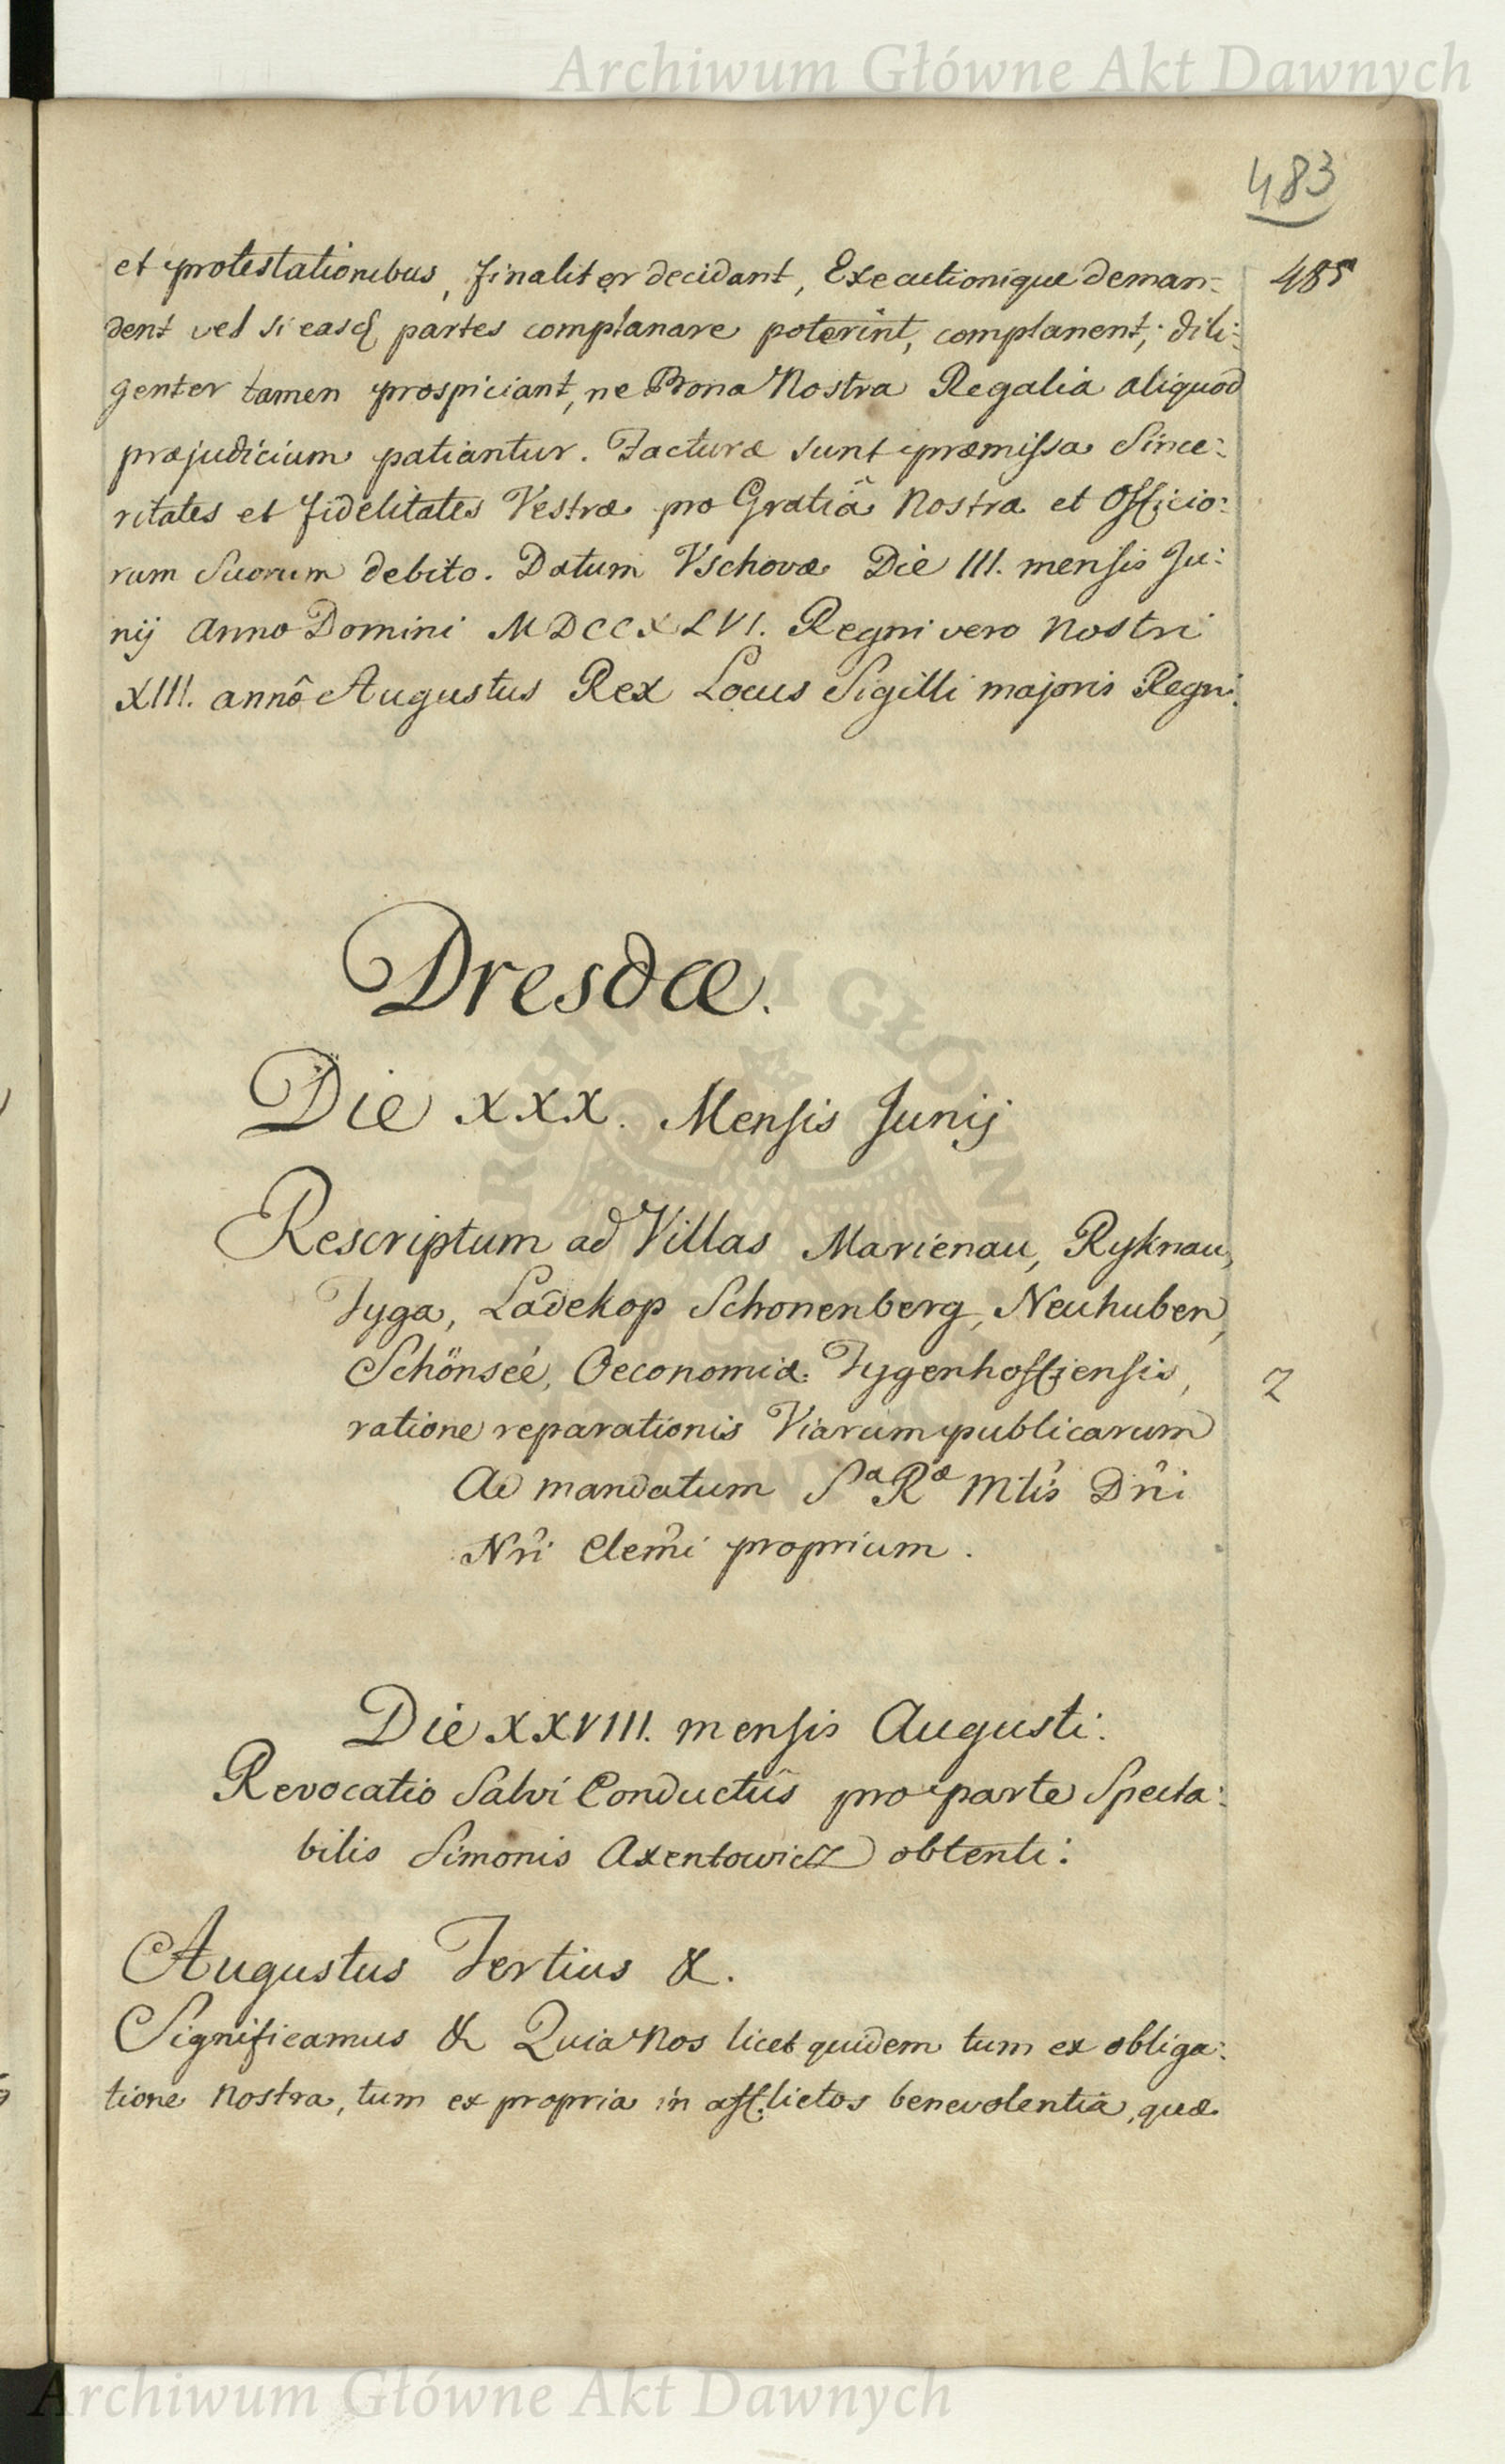 Archiwum Główne Akt Dawnych
483
485
et protestationibus, finaliter decidant, Executionique deman-
dent vel si easq́ partes complanare poterint, complanent; dili:
genter tamen prospiciant, ne Bona Nostra Regalia aliquod
præjudicium patiantur. Facturæ sunt præmissa Since:
ritates et fidelitates Vestræ pro Gratiâ Nostra et Officio:
rum Suorum debito. Datum Vschovæ Die III. mensis Ju:
nij Anno Domini MDCCXLVI. Regni vero Nostri
XIII. annô Augustus Rex Locus Sigilli majoris Regni.
Dresdæ.
Die XXX. Mensis Junij
Rescriptum ad Villas Marienau, Ryknau,
Tyga, Ladekop Schonenberg, Neuhuben,
Schönseé, Oeconomiæ Tygenhoffiensis,
2
ratione reparationis Viarum publicarum
Ad mandatum Sæ Ræ Mtis Dni
Nri Clemi proprium.
Die XXVIII. mensis Augusti:
Revocatio Salvi Conductûs pro parte Specta:
bilis Simonis Axentowicz obtenti:
Augustus Tertius &.
Significamus & Quia Nos licet quidem tum ex obliga:
tione Nostra, tum ex propria in afflictos benevolentiâ, quæ
Archiwum Główne Akt Dawnych